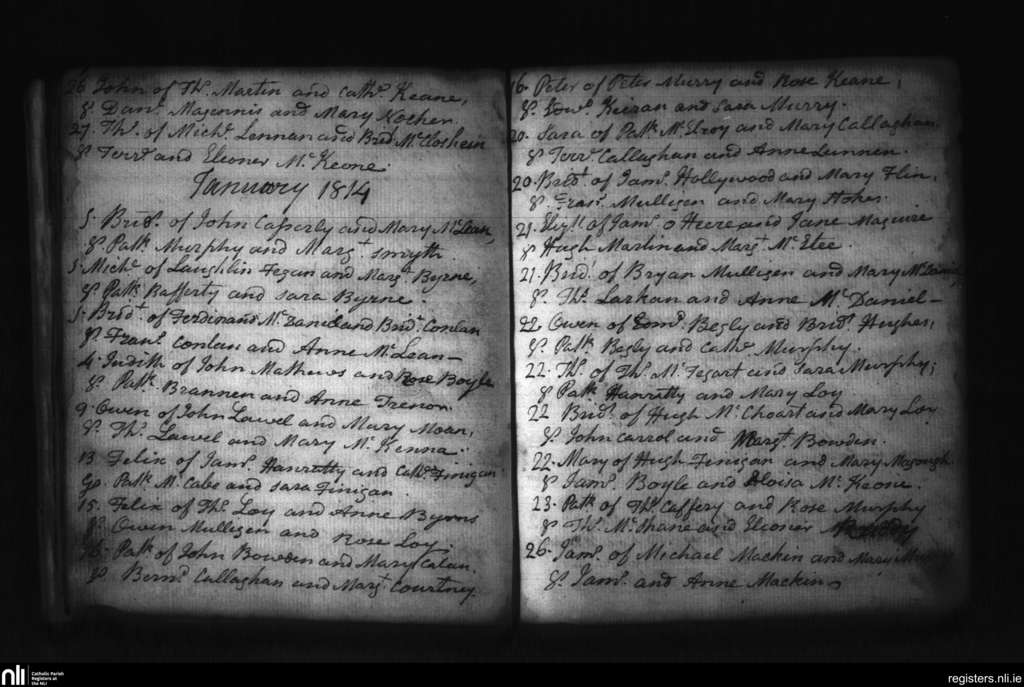 26 John of Ths. Martin and Cathe. Keane,
gs. Danl. Magennis and Mary Kocher.
27. Ths. of Michl. Lennan and Brid. McCloskein
gs Terre. and Eleoner McKeone.
January 1814
5. Bridt. of John Casserly and Mary McLean,
gs Patk. Murphy and Margt. Smyth.
5. Michl. of Laughlin Fegan and Margt. Byrne,
gs Patk. Rafferty and Sara Byrne.
5. Bridt. of Ferdinand McDaniel and Bridt. Conlan
gs. Frans. Conlan and Anne McLean—
4. Judith of John Mathews and Rose Boyle
gs Patk. Brannen and Anne Trenor.
9. Owen of John Lawel and Mary Moan,
gs. Ths. Lawel and Mary McKenna.
13 Felix of Jams. Hanrutty and Cathe. Finigan
gs. Patk. McCabe and Sara Finigan.
15. Felix of Ths. Loy and Anne Byrns
gs. Owen Mulligen and Rose Loy.
16. Patk. of John Bowden and Mary Catan.
gs. Bernd. Callaghan and Margt. Courtney.
16. Peter of Peter Murry and Rose Keane,
gs. Edwd. Keiran and Sara Murry.
20. Sara of Patk. McElroy and Mary Callaghan.
gs Terre. Callaghan and Anne Lunnen.
20. Bridt. of Jams. Hollywood and Mary Flin,
gs. Frans. Mulligen and Mary
21. of Jams. O Heere and Jane Maguire
gs Hugh Martin and Margt. McEtee.
21. Bridt. of Bryan Mulligen and Mary McDaniel,
gs. Ths. Larkan and Anne McDaniel—
22. Owen of Edmd. Begly and Bridt. Hughes,
gs. Patk. Begly and Cathe. Murphy.
22. Ths. of Ths. McTegart and Sara Murphy,
gs Patk. Hanrutty and Mary Loy
22 Bridt. of Hugh McChoart and Mary Loy
gs. John Carrol and Margt. Bowden.
22. Mary of Hugh Finigan and Mary Magough.
gs Jams. Boyle and Aloisa McKeone.
23. Patk. of Ths. Caffery and Rose Murphy
gs Ths. McShane and Eleoner
26. Jams. of Michael Mackin and Mary
gs. Jams. and Anne Mackin
nli
Catholic Parish
Registers at
the NLI
registers.nli.ie